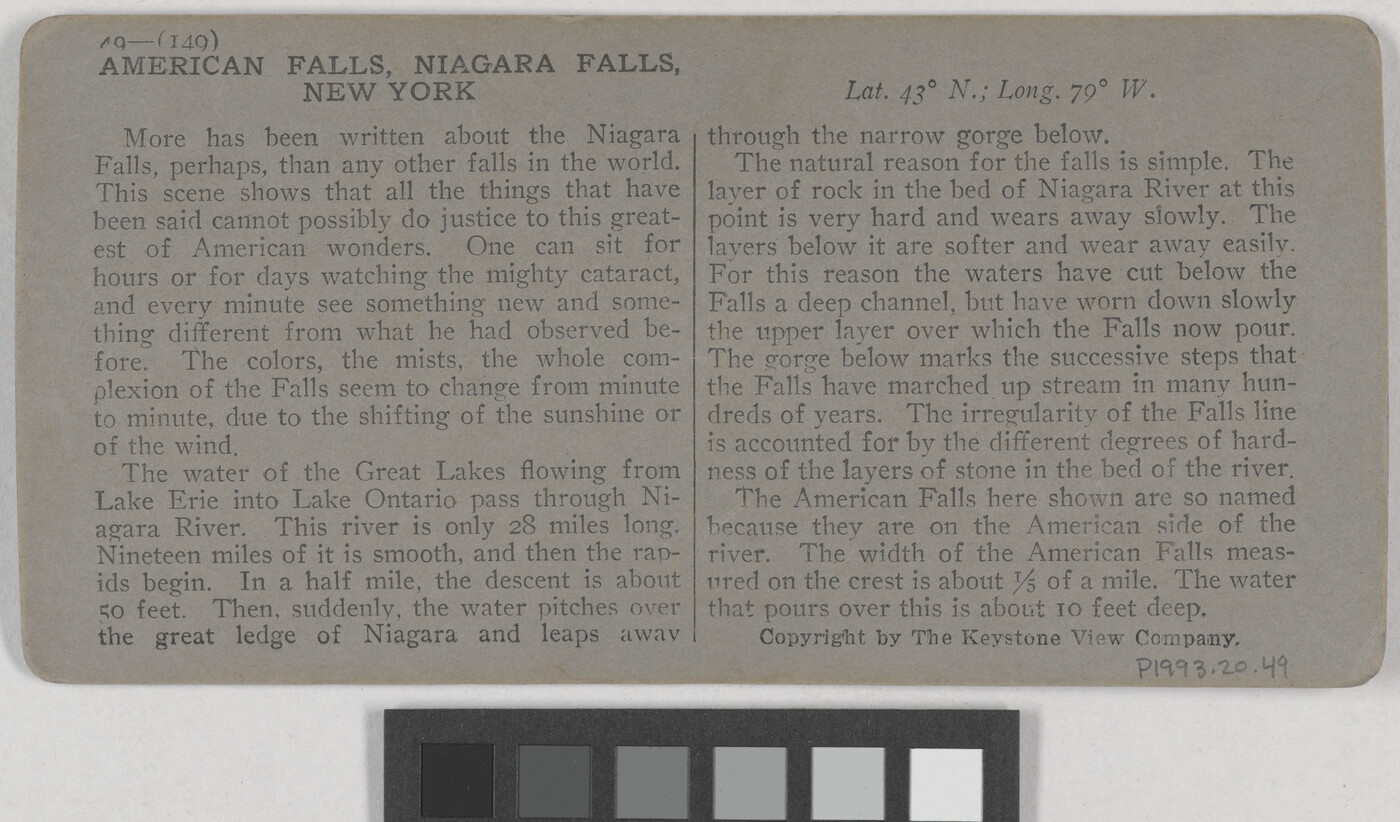 49—(149)
AMERICAN FALLS, NIAGARA FALLS,
NEW YORK
More has been written about the Niagara
Falls, perhaps, than any other falls in the world.
This scene shows that all the things that have
been said cannot possibly do justice to this great-
est of American wonders. One can sit for
hours or for days watching the mighty cataract,
and every minute see something new and some-
thing different from what he had observed be-
fore. The colors, the mists, the whole com-
plexion of the Falls seem to change from minute
to minute, due to the shifting of the sunshine or
of the wind.
The water of the Great Lakes flowing from
Lake Erie into Lake Ontario pass through Ni-
agara River. This river is only 28 miles long.
Nineteen miles of it is smooth, and then the rap-
ids begin. In a half mile, the descent is about
50 feet. Then, suddenly, the water pitches over
the great ledge of Niagara and leaps away
Lat. 43° N.; Long. 79° W.
through the narrow gorge below.
The natural reason for the falls is simple. The
layer of rock in the bed of Niagara River at this
point is very hard and wears away slowly. The
layers below it are softer and wear away easily.
For this reason the waters have cut below the
Falls a deep channel, but have worn down slowly
the upper layer over which the Falls now pour.
The gorge below marks the successive steps that
the Falls have marched up stream in many hun-
dreds of years. The irregularity of the Falls line
is accounted for by the different degrees of hard-
ness of the layers of stone in the bed of the river.
The American Falls here shown are so named
because they are on the American side of the
river. The width of the American Falls meas-
ured on the crest is about 1/5 of a mile. The water
that pours over this is about 10 feet deep.
Copyright by The Keystone View Company.
P1993.20.49